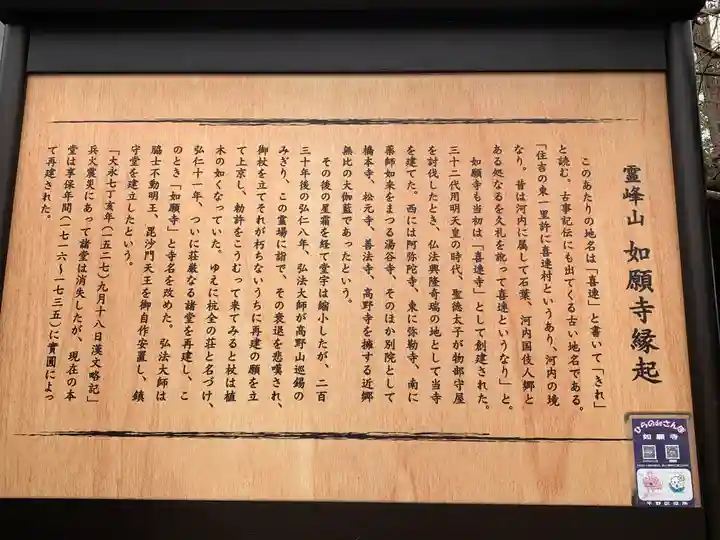 霊峰山 如願寺縁起
このあたりの地名は「喜連」と書いて「きれ」
と読む。古事記伝にも出てくる古い地名である。
「住吉の東一里許に喜連村というあり、河内の境
なり。昔は河内に属して石葉、河内国伎人郷と
ある処なるを久礼を訛って喜連というなり」と。
如願寺も当初は「喜連寺」として創建された。
三十二代用明天皇の時代、聖徳太子が物部守屋
を討伐したとき、仏法興隆奇瑞の地として当寺
を建てた。西には阿弥陀寺、東に弥勒寺、南に
薬師如来をまつる湯谷寺、そのほか別院として
橋本寺、松元寺、善法寺、高野寺を擁する近郷
無比の大伽藍であったという。
その後の星霜を経て堂宇は縮小したが、二百
三十年後の弘仁八年、弘法大師が高野山巡錫の
みぎり、この霊場に詣で、その衰退を悲嘆され、
御杖を立てそれが朽ちないうちに再建の願を立
て上京し、勅許をこうむって来てみると杖は植
木の如くなっていた。ゆえに杭全の荘と名づけ、
弘仁十一年、ついに荘厳なる諸堂を再建し、こ
のとき「如願寺」と寺名を改めた。弘法大師は
脇士不動明王、毘沙門天王を御自作安置し、鎮
守堂を建立したという。
「大永七丁亥年（一五二七）九月十八日漢文略記」
兵火震災にあって諸堂は消失したが、現在の本
堂は享保年間（一七一六～一七三五）に賞圓によっ
て再建された。
ひらの
さんぽ
如願寺
平野区役所